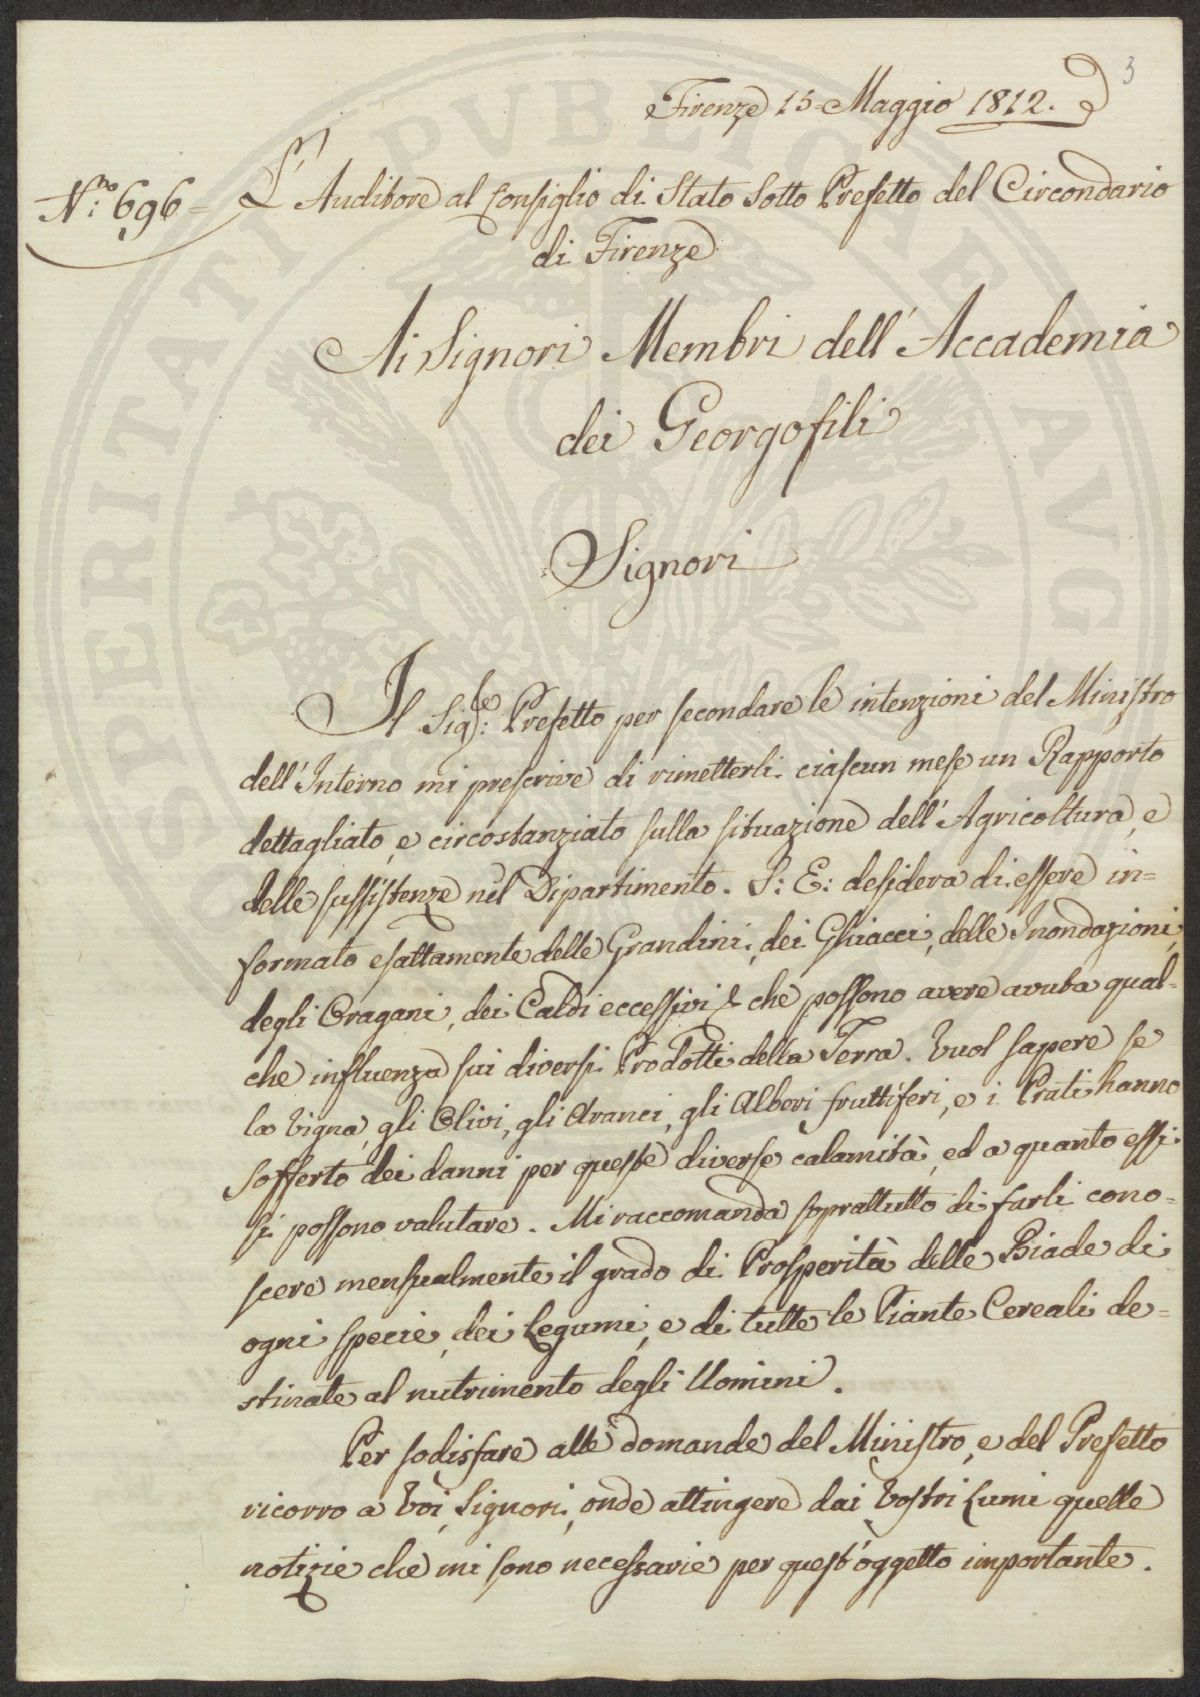 3
Firenze 15 Maggio 1812.
N.ro 696 = L'Auditore al Consiglio di Stato Sotto Prefetto del Circondario
di Firenze
Ai Signori Membri dell'Accademia
dei Georgofili
Signori
Il Sig.re Prefetto per secondare le intenzioni del Ministro
dell'Interno mi prescrive di rimetterli ciascun mese un Rapporto
dettagliato, e circostanziato sulla situazione dell'Agricoltura, e
delle sussistenze nel Dipartimento. S: E: desidera di essere in=
formato esattamente delle Grandini, dei Ghiacci, delle Inondazioni,
degli Oragani, dei Caldi eccessivi & che possono avere avuta qual=
che influenza sui diversi Prodotti della Terra. Vuol sapere se
la Vigna, gli Olivi, gli Aranci, gli Alberi fruttiferi, e i Prati hanno
sofferto dei danni per queste diverse calamità, ed a quanto essi
si possono valutare. Mi raccomanda soprattutto di farli cono=
scere mensualmente il grado di Prosperità delle Biade di
ogni specie, dei Legumi, e di tutte le Piante Cereali de=
stinate al nutrimento degli Uomini.
Per sodisfare alle domande del Ministro, e del Prefetto
ricorro a Voi, Signori, onde attingere dai Vostri Lumi quelle
notizie che mi sono necessarie per quest'oggetto importante.